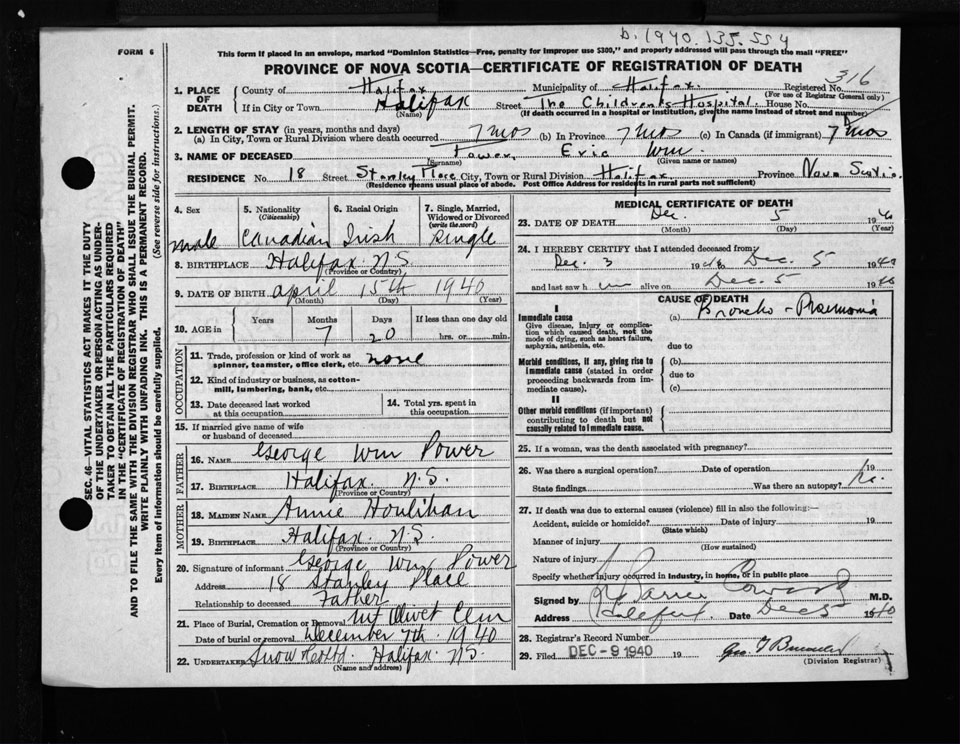 b. 1940.135.554
FORM 6
This form if placed in an envelope, marked "Dominion Statistics—Free, penalty for improper use $300," and properly addressed will pass through the mail "FREE"
PROVINCE OF NOVA SCOTIA—CERTIFICATE OF REGISTRATION OF DEATH
316
1. PLACE OF DEATH County of Halifax Municipality of Halifax. Registered No.
(For use of Registrar General only)
If in City or Town Halifax Street The Children's Hospital. House No.
(Name) (If death occurred in a hospital or institution, give the name instead of street and number)
2. LENGTH OF STAY (in years, months and days)
(a) In City, Town or Rural Division where death occurred 7 mos (b) In Province 7 mos (c) In Canada (if immigrant) 7 mos
3. NAME OF DECEASED Power, Eric Wm.
(Surname) (Given name or names)
RESIDENCE No. 18 Street Stanley Place City, Town or Rural Division Halifax. Province Nova Scotia.
(Residence means usual place of abode. Post Office Address for residents in rural parts not sufficient)
SEC. 46—VITAL STATISTICS ACT MAKES IT THE DUTY
OF THE UNDERTAKER OR PERSON ACTING AS UNDER-
TAKER TO OBTAIN ALL THE PARTICULARS REQUIRED
IN THE "CERTIFICATE OF REGISTRATION OF DEATH"
AND TO FILE THE SAME WITH THE DIVISION REGISTRAR WHO SHALL ISSUE THE BURIAL PERMIT.
WRITE PLAINLY WITH UNFADING INK. THIS IS A PERMANENT RECORD.
Every item of information should be carefully supplied. (See reverse side for instructions.)
4. Sex 5. Nationality (Citizenship) 6. Racial Origin 7. Single, Married, Widowed or Divorced (write the word)
male Canadian Irish Single
8. BIRTHPLACE Halifax N.S.
(Province or Country)
9. DATE OF BIRTH April 15th 1940
(Month) (Day) (Year)
10. AGE in Years Months Days If less than one day old
7 20 hrs. or min.
OCCUPATION
11. Trade, profession or kind of work as none
spinner, teamster, office clerk, etc.
12. Kind of industry or business, as cotton-
mill, lumbering, bank, etc.
13. Date deceased last worked at this occupation 14. Total yrs. spent in this occupation
15. If married give name of wife
or husband of deceased
FATHER
16. NAME George Wm Power
17. BIRTHPLACE Halifax. N.S.
(Province or Country)
MOTHER
18. MAIDEN NAME Annie Houlihan
19. BIRTHPLACE Halifax. N.S.
(Province or Country)
20. Signature of informant George Wm Power
Address 18 Stanley Place
Relationship to deceased Father
21. Place of Burial, Cremation or Removal Mt Olivet Cem
Date of burial or removal December 7th. 1940
22. UNDERTAKER Snow & Co Ltd. Halifax N.S.
(Name and address)
MEDICAL CERTIFICATE OF DEATH
23. DATE OF DEATH Dec. 5 1940
(Month) (Day) (Year)
24. I HEREBY CERTIFY that I attended deceased from:
Dec. 3 1940 to Dec. 5 1940
and last saw him alive on Dec. 5 1940
CAUSE OF DEATH
I
Immediate cause (a) Broncho-Pneumonia
Give disease, injury or complica-
tion which caused death, not the
mode of dying, such as heart failure,
asphyxia, asthenia, etc.
due to
Morbid conditions, if any, giving rise to (b)
immediate cause (stated in order
proceeding backwards from im-
mediate cause).
due to
(c)
II
Other morbid conditions (if important)
contributing to death but not
causally related to immediate cause.
25. If a woman, was the death associated with pregnancy?
26. Was there a surgical operation? Date of operation 19
State findings Was there an autopsy? No.
27. If death was due to external causes (violence) fill in also the following:—
Accident, suicide or homicide? Date of injury 19
(State which)
Manner of injury
(How sustained)
Nature of injury
Specify whether injury occurred in industry, in home, or in public place
Signed by M.D.
Address Halifax Date Dec 5 1940
28. Registrar's Record Number
29. Filed DEC -9 1940 19
(Division Registrar)